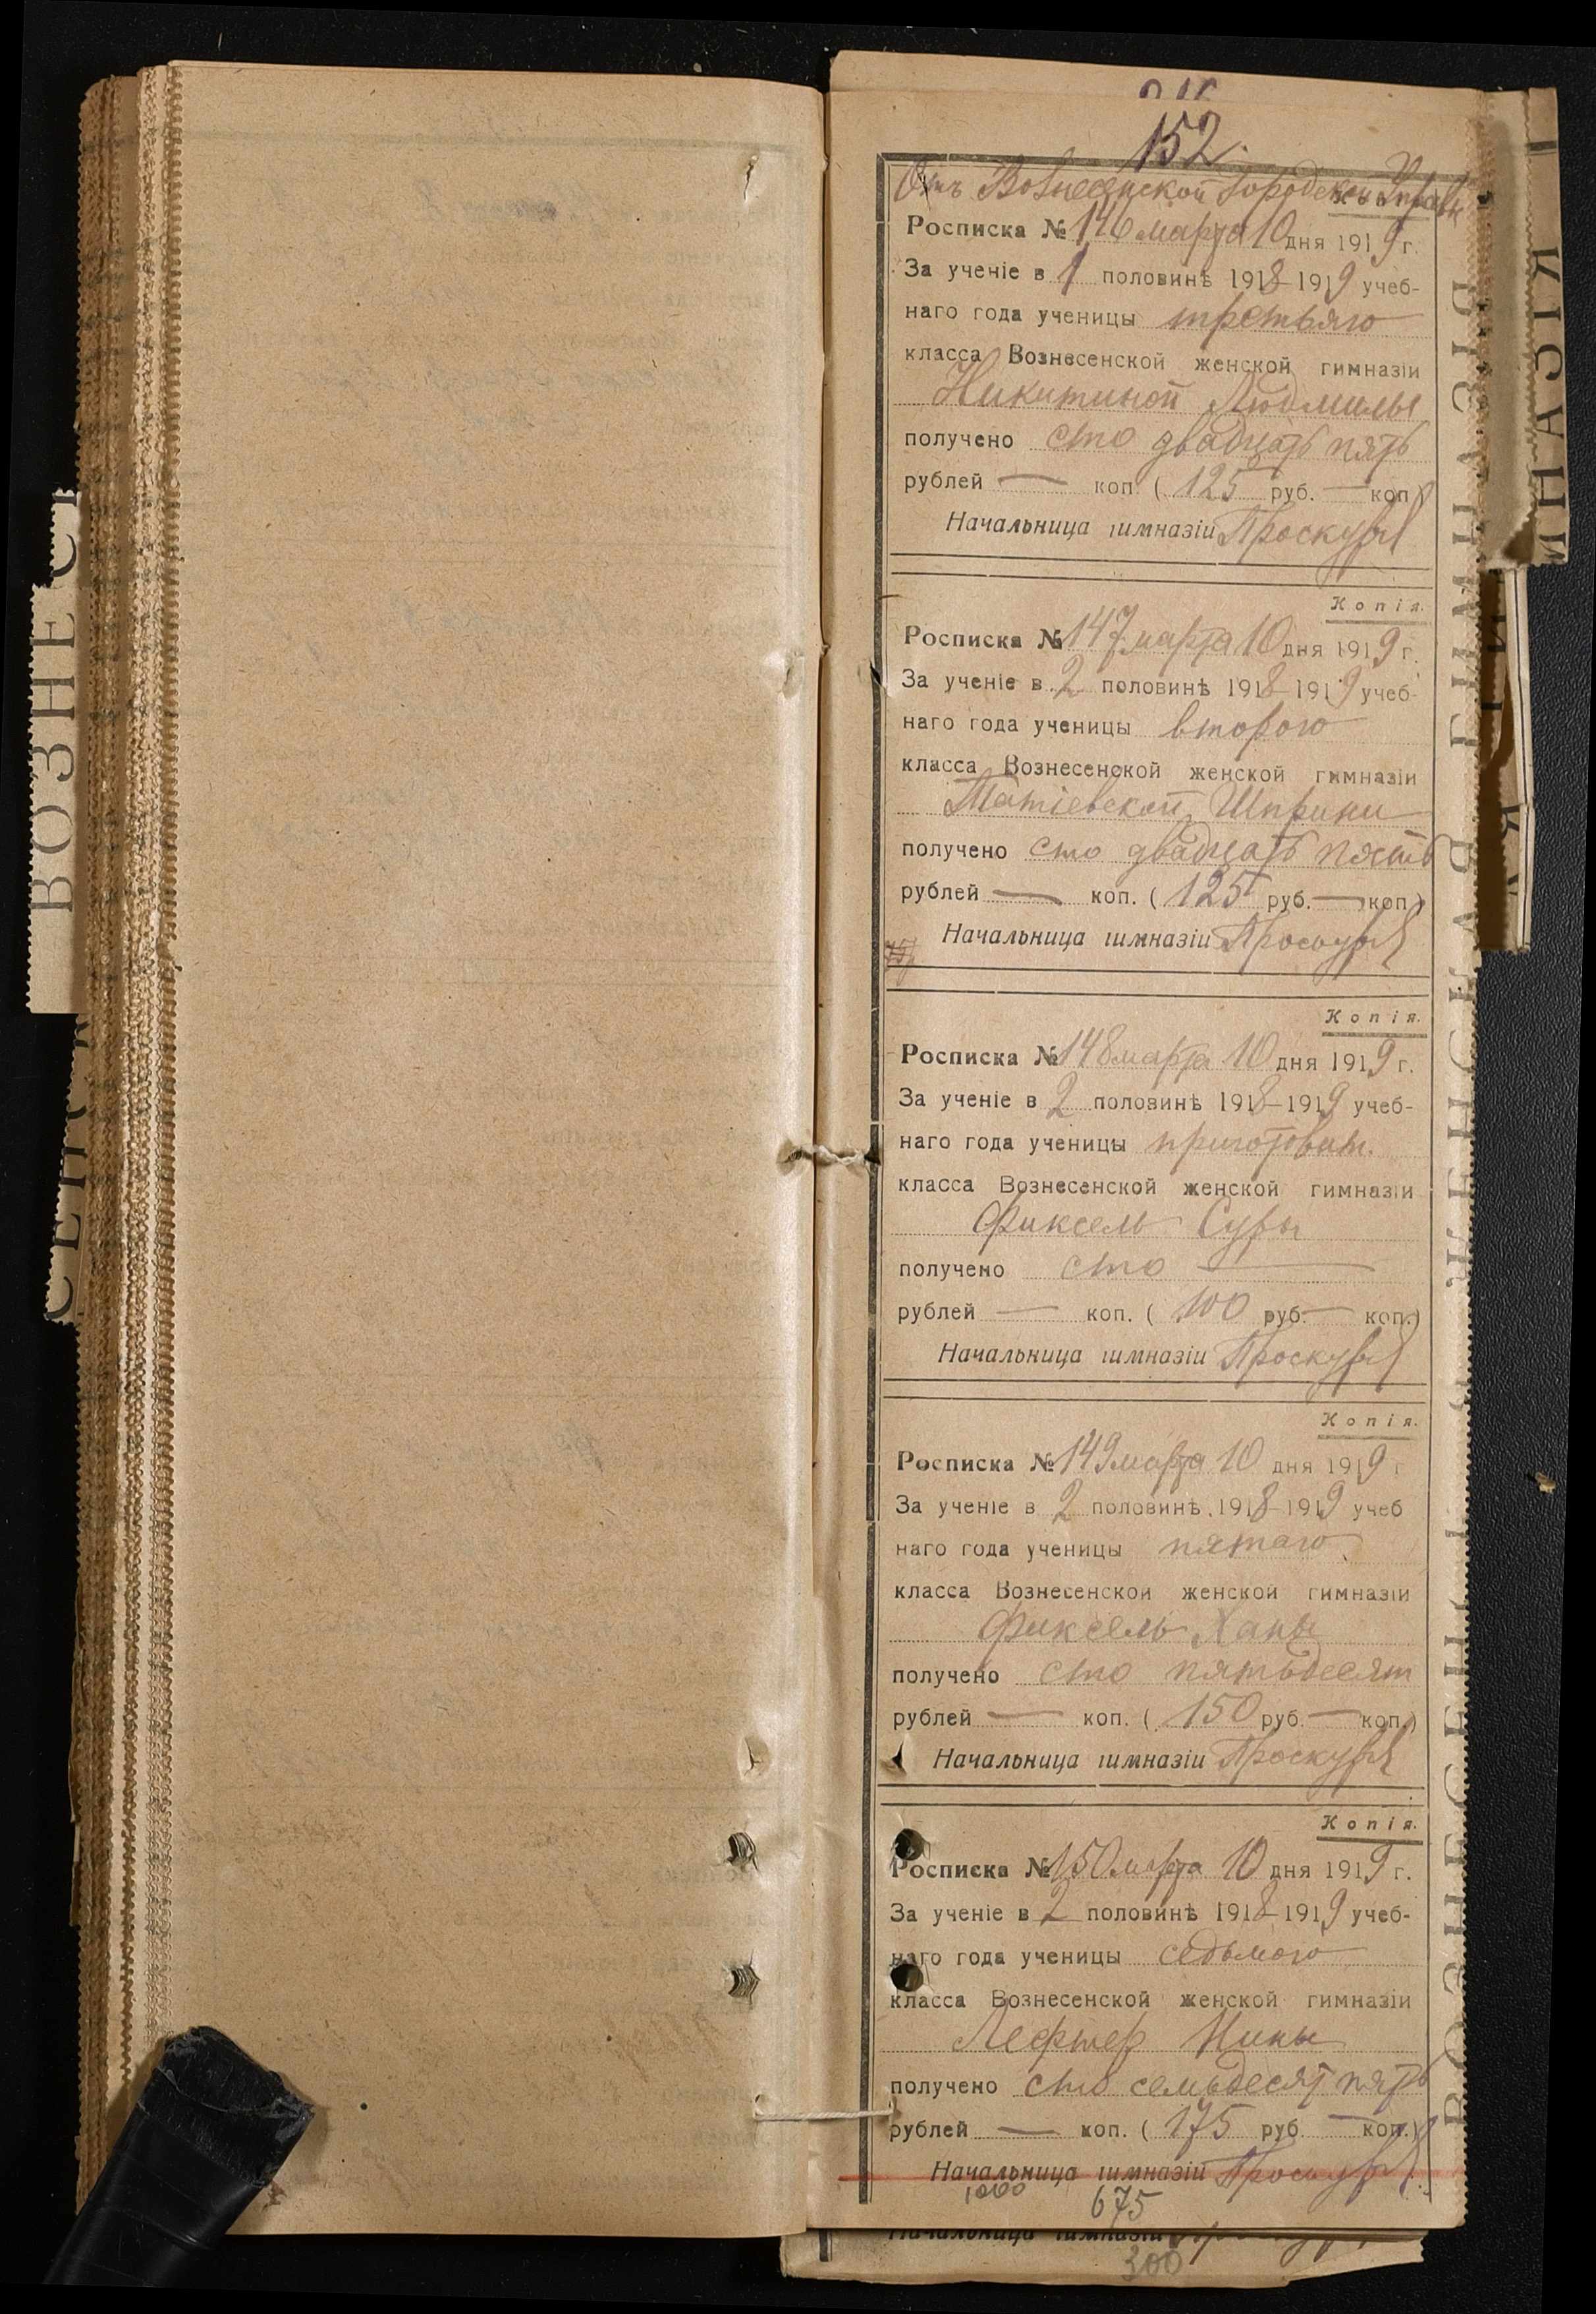 152.
Отъ Вознесенской Городской Управы
Росписка № 146 марта 10 дня 1919 г.
За ученіе в 1 половинѣ 1918-1919 учеб-
наго года ученицы третьяго
класса Вознесенской женской гимназіи
Никитиной Людмилы
получено сто двадцать пять
рублей — коп. ( 125 руб. — коп.)
Начальница гимназіи Проскур
Копія.
Росписка № 147 марта 10 дня 1919 г.
За ученіе в 2 половинѣ 1918-1919 учеб-
наго года ученицы второго
класса Вознесенской женской гимназіи
Матіевской
получено сто двадцать пять
рублей — коп. ( 125 руб. — коп.)
Начальница гимназіи Проскур
Копія.
Росписка № 148 марта 10 дня 1919 г.
За ученіе в 2 половинѣ 1918-1919 учеб-
наго года ученицы приготовит.
класса Вознесенской женской гимназіи
Фиксель Суры
получено сто —
рублей — коп. ( 100 руб. — коп.)
Начальница гимназіи Проскур
Копія.
Росписка № 149 марта 10 дня 1919 г
За ученіе в 2 половинѣ 1918-1919 учеб
наго года ученицы пятаго
класса Вознесенской женской гимназіи
Фиксель Ханы
получено сто пятьдесят
рублей — коп. ( 150 руб. — коп.)
Начальница гимназіи Проскур
Копія.
Росписка № 150 марта 10 дня 1919 г.
За ученіе в 2 половинѣ 1918-1919 учеб-
наго года ученицы седьмого
класса Вознесенской женской гимназіи
Лефтер Нины
получено сто семьдесят пять
рублей — коп. ( 175 руб — коп.)
Начальница гимназіи Проскур
1060
675
Начальница гимназіи
300
ВОЗНЕС
ВОЗНЕСЕНСКАЯ ЖЕНСКАЯ ГИМНАЗІЯ